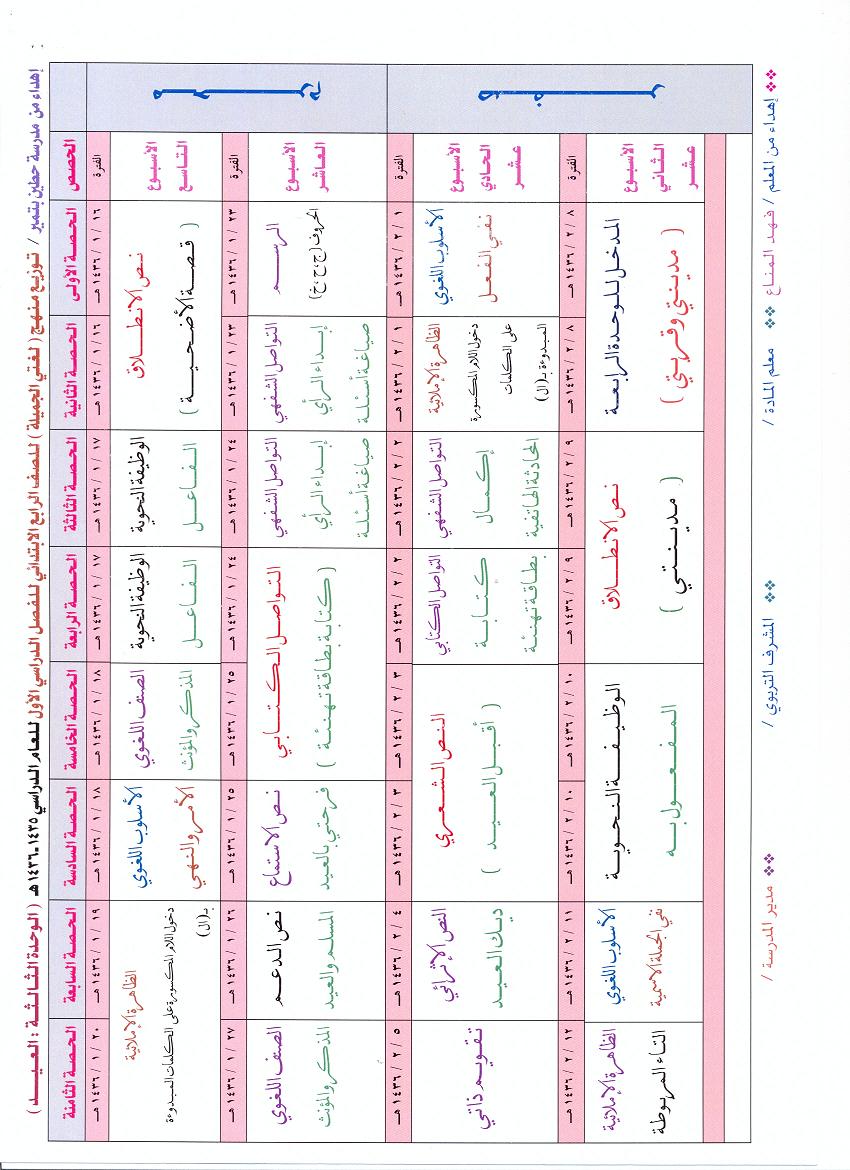 إهداء من مدرسة حطين بتمير / توزيع منهج ( لغتي الجميلة ) للصف الرابع الابتدائي للفصل الدراسي الأول للعام الدراسي ١٤٣٥-١٤٣٦ هـ ( الوحدة الثالثة : العيد )
الحصص الحصة الأولى الحصة الثانية الحصة الثالثة الحصة الرابعة الحصة الخامسة الحصة السادسة الحصة السابعة الحصة الثامنة
محرم
الفترة ١٦ / ١ / ١٤٣٦ هـ ١٦ / ١ / ١٤٣٦ هـ ١٧ / ١ / ١٤٣٦ هـ ١٧ / ١ / ١٤٣٦ هـ ١٨ / ١ / ١٤٣٦ هـ ١٨ / ١ / ١٤٣٦ هـ ١٩ / ١ / ١٤٣٦ هـ ٢٠ / ١ / ١٤٣٦ هـ
الأسبوع
التاسع
نص الانطلاق
( قصة الأضحية )
الوظيفة النحوية
الفاعل
الوظيفة النحوية
الفاعل
الصنف اللغوي
المذكر والمؤنث
الأسلوب اللغوي
الأمر والنهي
الظاهرة الإملائية
دخول اللام المكسورة على الكلمات المبدوءة
بـ(ال)
الفترة ٢٣ / ١ / ١٤٣٦ هـ ٢٣ / ١ / ١٤٣٦ هـ ٢٤ / ١ / ١٤٣٦ هـ ٢٤ / ١ / ١٤٣٦ هـ ٢٥ / ١ / ١٤٣٦ هـ ٢٥ / ١ / ١٤٣٦ هـ ٢٦ / ١ / ١٤٣٦ هـ ٢٧ / ١ / ١٤٣٦ هـ
الأسبوع
العاشر
الرسم
الحروف (ج ، ح ، خ)
التواصل الشفهي
إبداء الرأي
صياغة أسئلة
التواصل الشفهي
إبداء الرأي
صياغة أسئلة
التواصل الكتابي
( كتابة بطاقة تهنئة )
نص الاستماع
فرحتي بالعيد
نص الدعم
المسلم والعيد
الصنف اللغوي
المذكر والمؤنث
صفر
الفترة ١ / ٢ / ١٤٣٦ هـ ١ / ٢ / ١٤٣٦ هـ ٢ / ٢ / ١٤٣٦ هـ ٢ / ٢ / ١٤٣٦ هـ ٣ / ٢ / ١٤٣٦ هـ ٣ / ٢ / ١٤٣٦ هـ ٤ / ٢ / ١٤٣٦ هـ ٥ / ٢ / ١٤٣٦ هـ
الأسبوع
الحادي
عشر
الأسلوب اللغوي
نفي الفعل
الظاهرة الإملائية
دخول اللام المكسورة
على الكلمات
المبدوءة بـ(ال)
التواصل الشفهي
إكمال
المحادثة الهاتفية
التواصل الكتابي
كتابة
بطاقة تهنئة
النص الشعري
( أقبل العيد )
النص الإثرائي
ديك العيد
تقويم ذاتي
الفترة ٨ / ٢ / ١٤٣٦ هـ ٨ / ٢ / ١٤٣٦ هـ ٩ / ٢ / ١٤٣٦ هـ ٩ / ٢ / ١٤٣٦ هـ ١٠ / ٢ / ١٤٣٦ هـ ١٠ / ٢ / ١٤٣٦ هـ ١١ / ٢ / ١٤٣٦ هـ ١٢ / ٢ / ١٤٣٦ هـ
الأسبوع
الثاني
عشر
المدخل للوحدة الرابعة
( مدينتي وقريتي )
نص الانطلاق
( مدينتي )
الوظيفة النحوية
المفعول به
الأسلوب اللغوي
نفي الجملة الاسمية
الظاهرة الإملائية
التاء المربوطة
❖❖ إهداء من المعلم / فهد المناع ❖❖ معلم المادة / ❖❖ المشرف التربوي / ❖❖ مدير المدرسة /